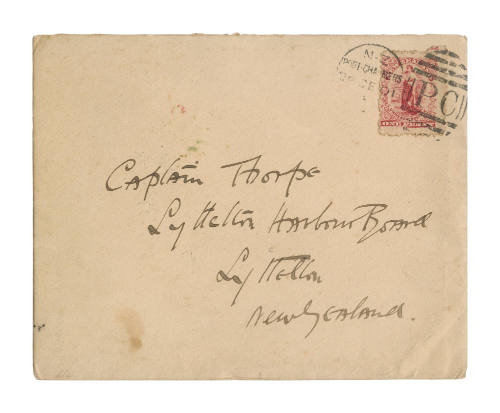 N.Z
PORT-CHALMERS
PC
Captain Thorpe
Lyttelton Harbour Board
Lyttelton
New Zealand.